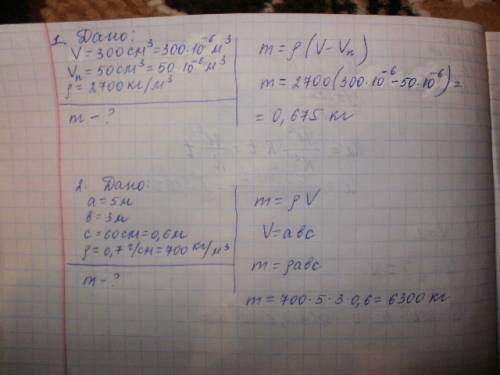 1. Дано:
V = 300 см³ = 300·10⁻⁶ м³
Vₙ = 50 см³ = 50·10⁻⁶ м³
ρ = 2700 кг/м³
m - ?
m = ρ (V - Vₙ)
m = 2700 (300·10⁻⁶ - 50·10⁻⁶) =
= 0,675 кг
2. Дано:
a = 5 м
в = 3 м
c = 60 см = 0,6 м
ρ = 0,7 г/см = 700 кг/м³
m - ?
m = ρV
V = aвc
m = ρaвc
m = 700·5·3·0,6 = 6300 кг